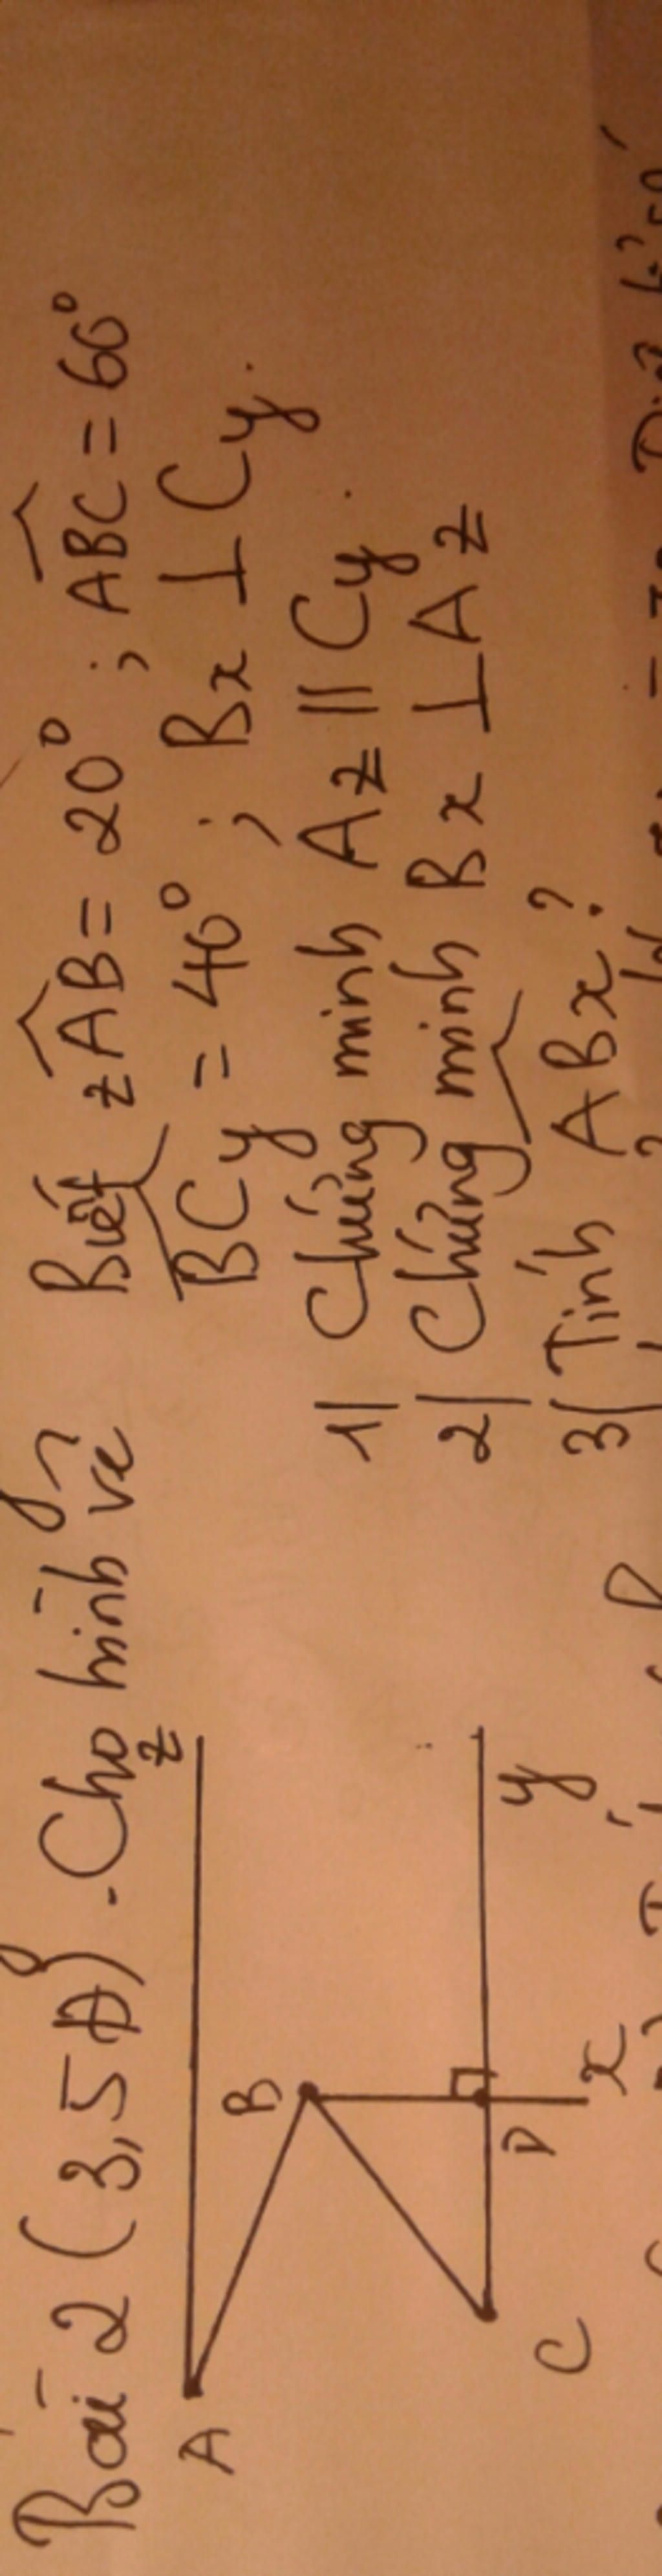 Bài 2 (3,5đ). Cho hình vẽ
Biết zAB = 20° ; ABC = 60°
BCy = 40° ; Bx ⊥ Cy.
1) Chứng minh Az // Cy.
2) Chứng minh Bx ⊥ Az
3) Tính ABx ?
A
z
B
C
D
y
x